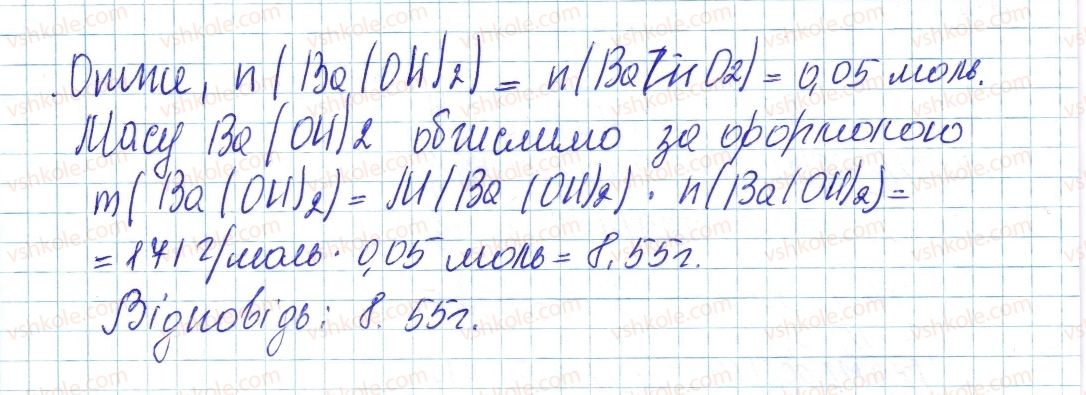 Отже, n(Ba(OH)2) = n(BaZnO2) = 0,05 моль.
Масу Ba(OH)2 обчислимо за формолою
m(Ba(OH)2) = M(Ba(OH)2) · n(Ba(OH)2) =
= 171 г/моль · 0,05 моль = 8,55г.
Відповідь: 8.55г.